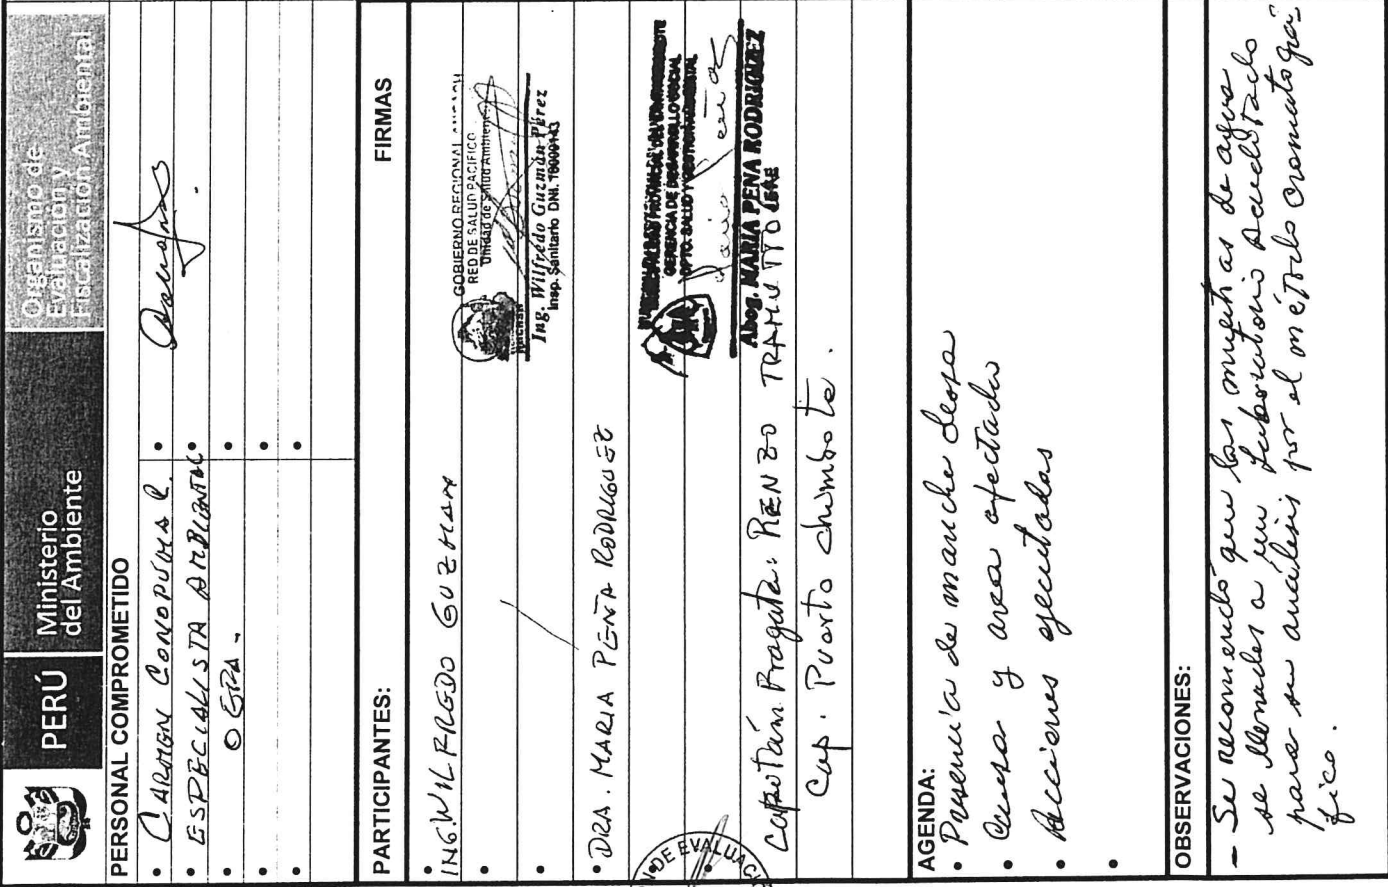 PERÚ
Ministerio
del Ambiente
Organismo de
Evaluación y
Fiscalización Ambiental
PERSONAL COMPROMETIDO
• CARMEN R.
• ESPECIALISTA AMBIENTAL
• OEFA.
PARTICIPANTES:
FIRMAS
• ING. WILFREDO GUZMAN
GOBIERNO REGIONAL ANCASH
RED DE SALUD PACIFICO
Unidad de Salud Ambiental
Ing. Wilfredo Guzmán Pérez
Insp. Sanitario DNI.
• DRA. MARIA PEÑA RODRIGUEZ
GERENCIA DE DESARROLLO SOCIAL
Abog. MARIA PEÑA RODRIGUEZ
JEFE
DE EVALUAC
Capitán Fragata: RENZO
Cap. Puerto Chimbote.
AGENDA:
• Presencia de mancha
• Causa y area afectada
• Acciones ejecutadas
OBSERVACIONES:
- Se recomendó que las muestras de agua
se llevadas a un Laboratorio acreditado
para su análisis por el método cromatográ-
fico.